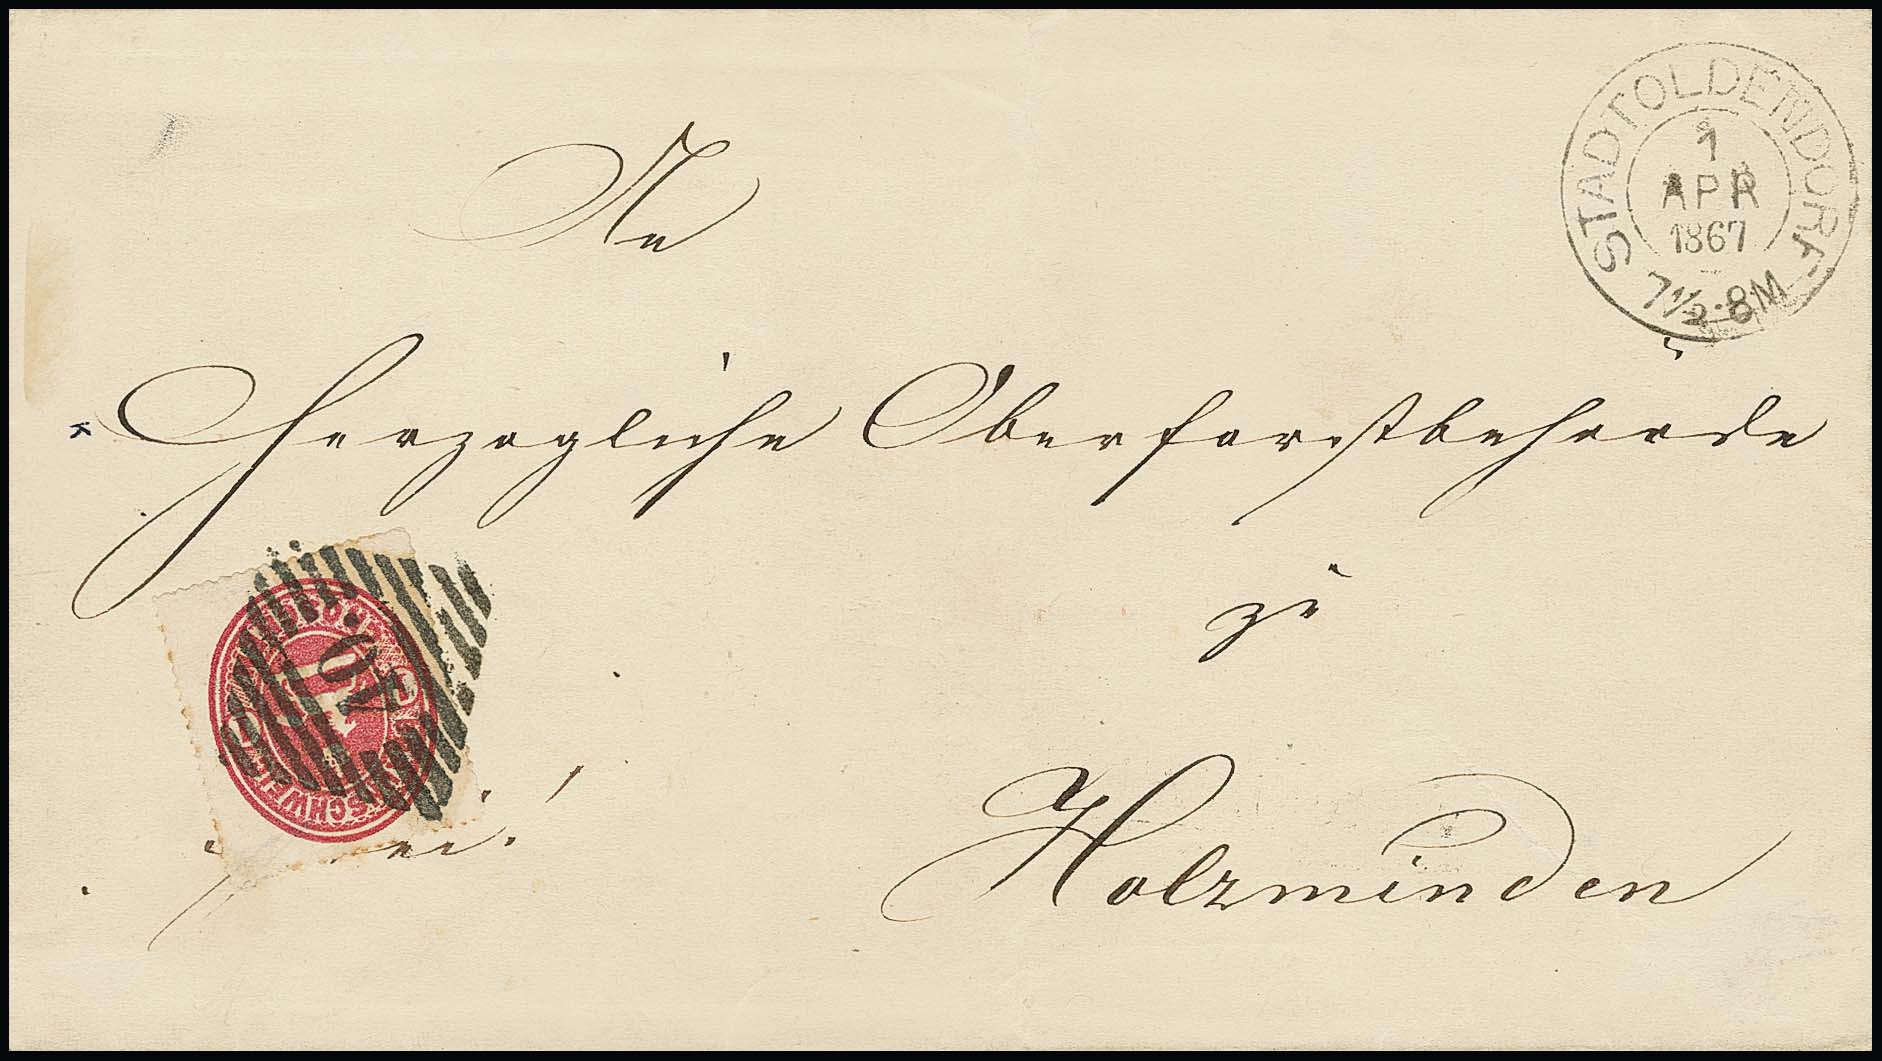 STADTOLDENDORF
1
APR
1867
7½-8M
An
Herzogliche Oberforstbehörde
zu
Holzminden
40
1
frei!